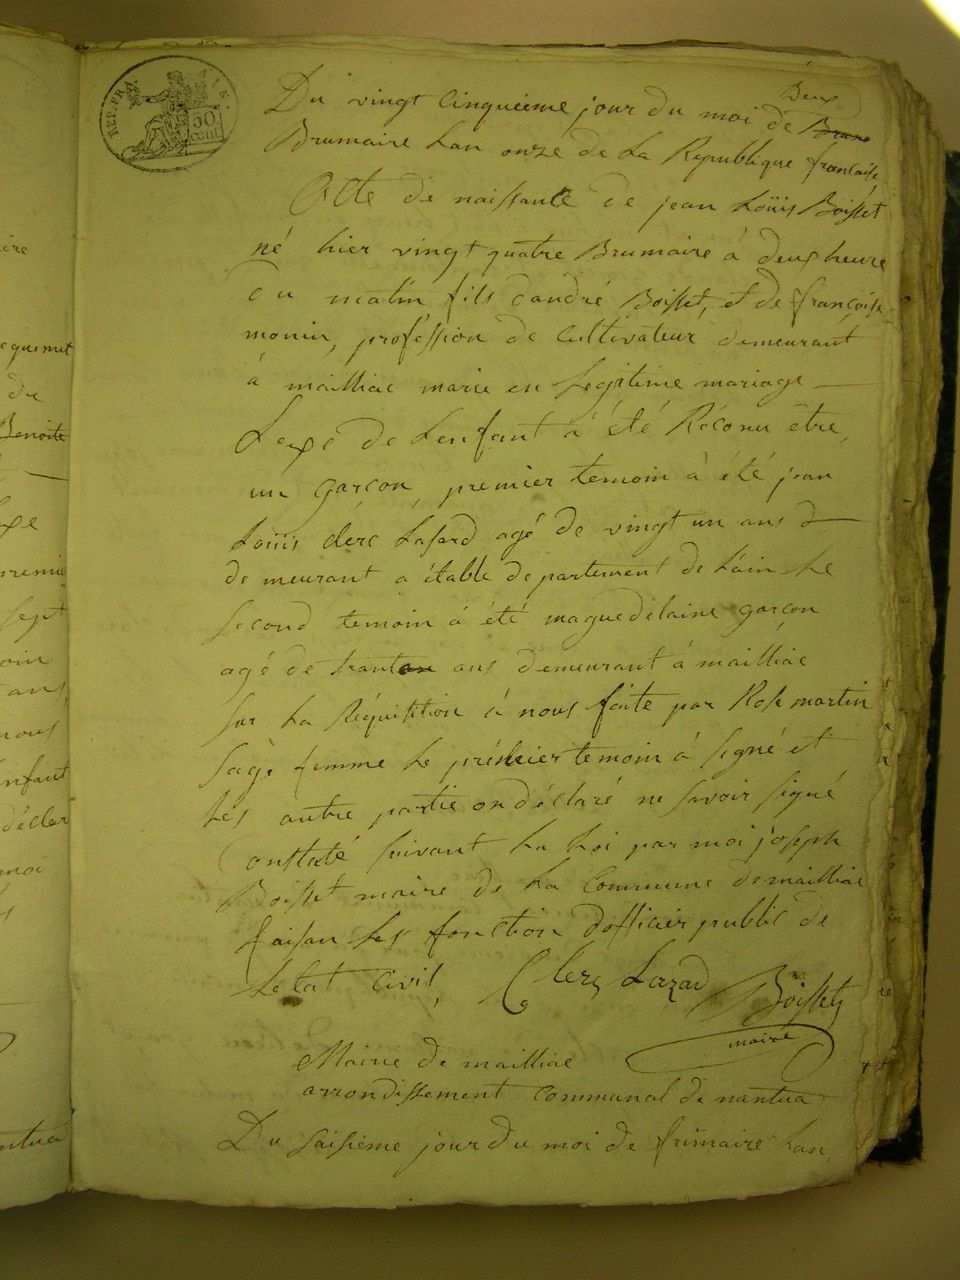 REP. FRA. 50 cent
Deux
Du vingt cinquieme jour du moi de Brume
Brumaire Lan onze de La Republique francaise
Acte de naissante de jean Loüis Boisset
né hier vingt quatre Brumaire à deux heure
du matin fils dandré Boisset, et de françoise
monin, profession de cultivateur demeurant
à mailliac marie en Legitime mariage
Lexe de Lenfant à été Réconu être
un garçon, premier temoin à été jean
Loüis clerc Lasard agé de vingt un ans d
de meurant a étable departement de Lain Le
second temoin à été maguedelaine garçon
agé de trantan ans demeurant à mailliac
sur La Réquisition à nous faite par Rose martin
sage femme Le premier temoin à signé et
Les autre partie on déclaré ne savoir signé
Constaté suivant La Loi par moi joseph
Boisset maire de La commune demailliac
faisan Les fonction dofficier public de
Letat civil, Clerc Lazard Boisset
maire
Mairie de mailliac
arrondissement communal de nantua
Du saisieme jour du moi de frimaire Lan
ire
quemet
du
Benoite
xe
premie
sept
oin
ans
nous
enfant
décler
moi
antua